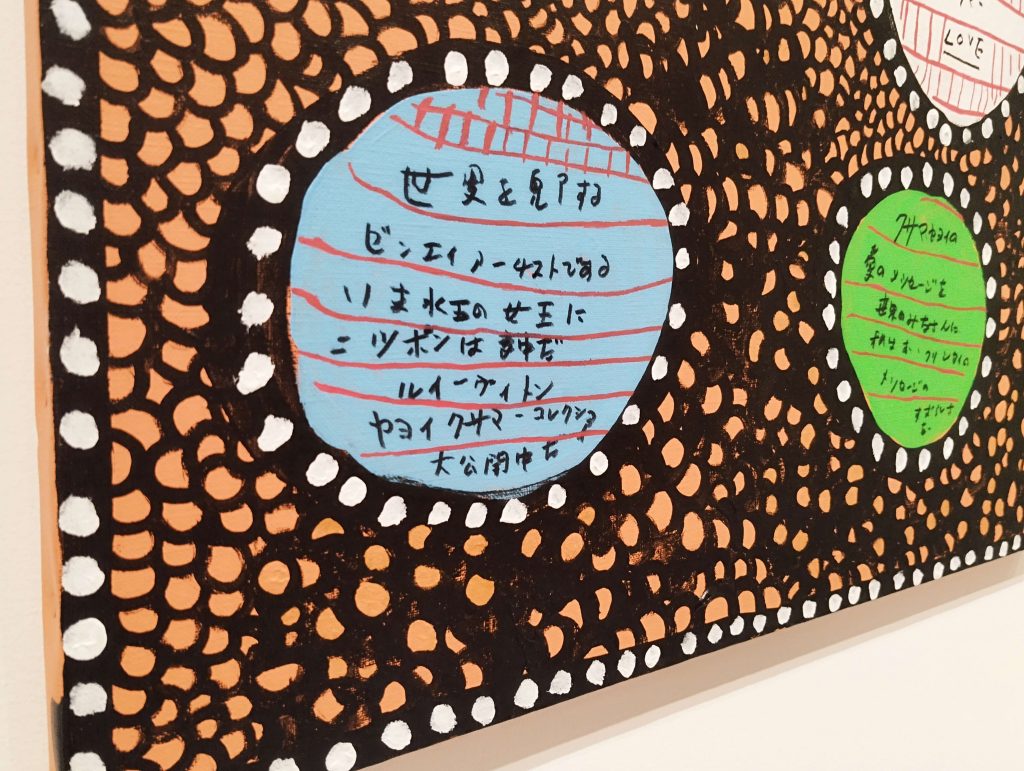 LOVE
世界を見了する
ビンエイアーチストである
いま水玉の女王に
ニッポンは夢中だ
ルイーヴィトン
ヤヨイクサマーコレクション
大公開中だ
クサマヤヨイの
愛のメッセージを
世界のみなさんに
メッセージの